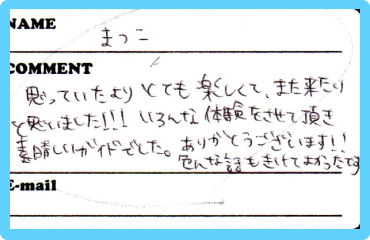 NAME
まつこ
COMMENT
思っていたよりとても楽しくて、また来たい
と思いました!!! いろんな体験をさせて頂き
素晴しいガイドでした。ありがとうございます!!
色んな話もきけてよかったです
E-mail